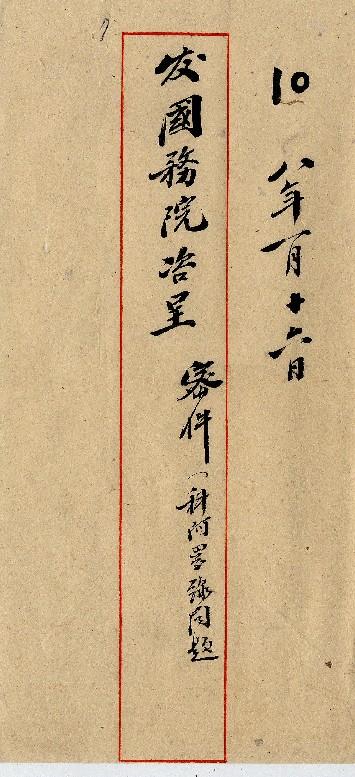 10
八年一月十六日
发國務院咨呈
密件
科阿 問題